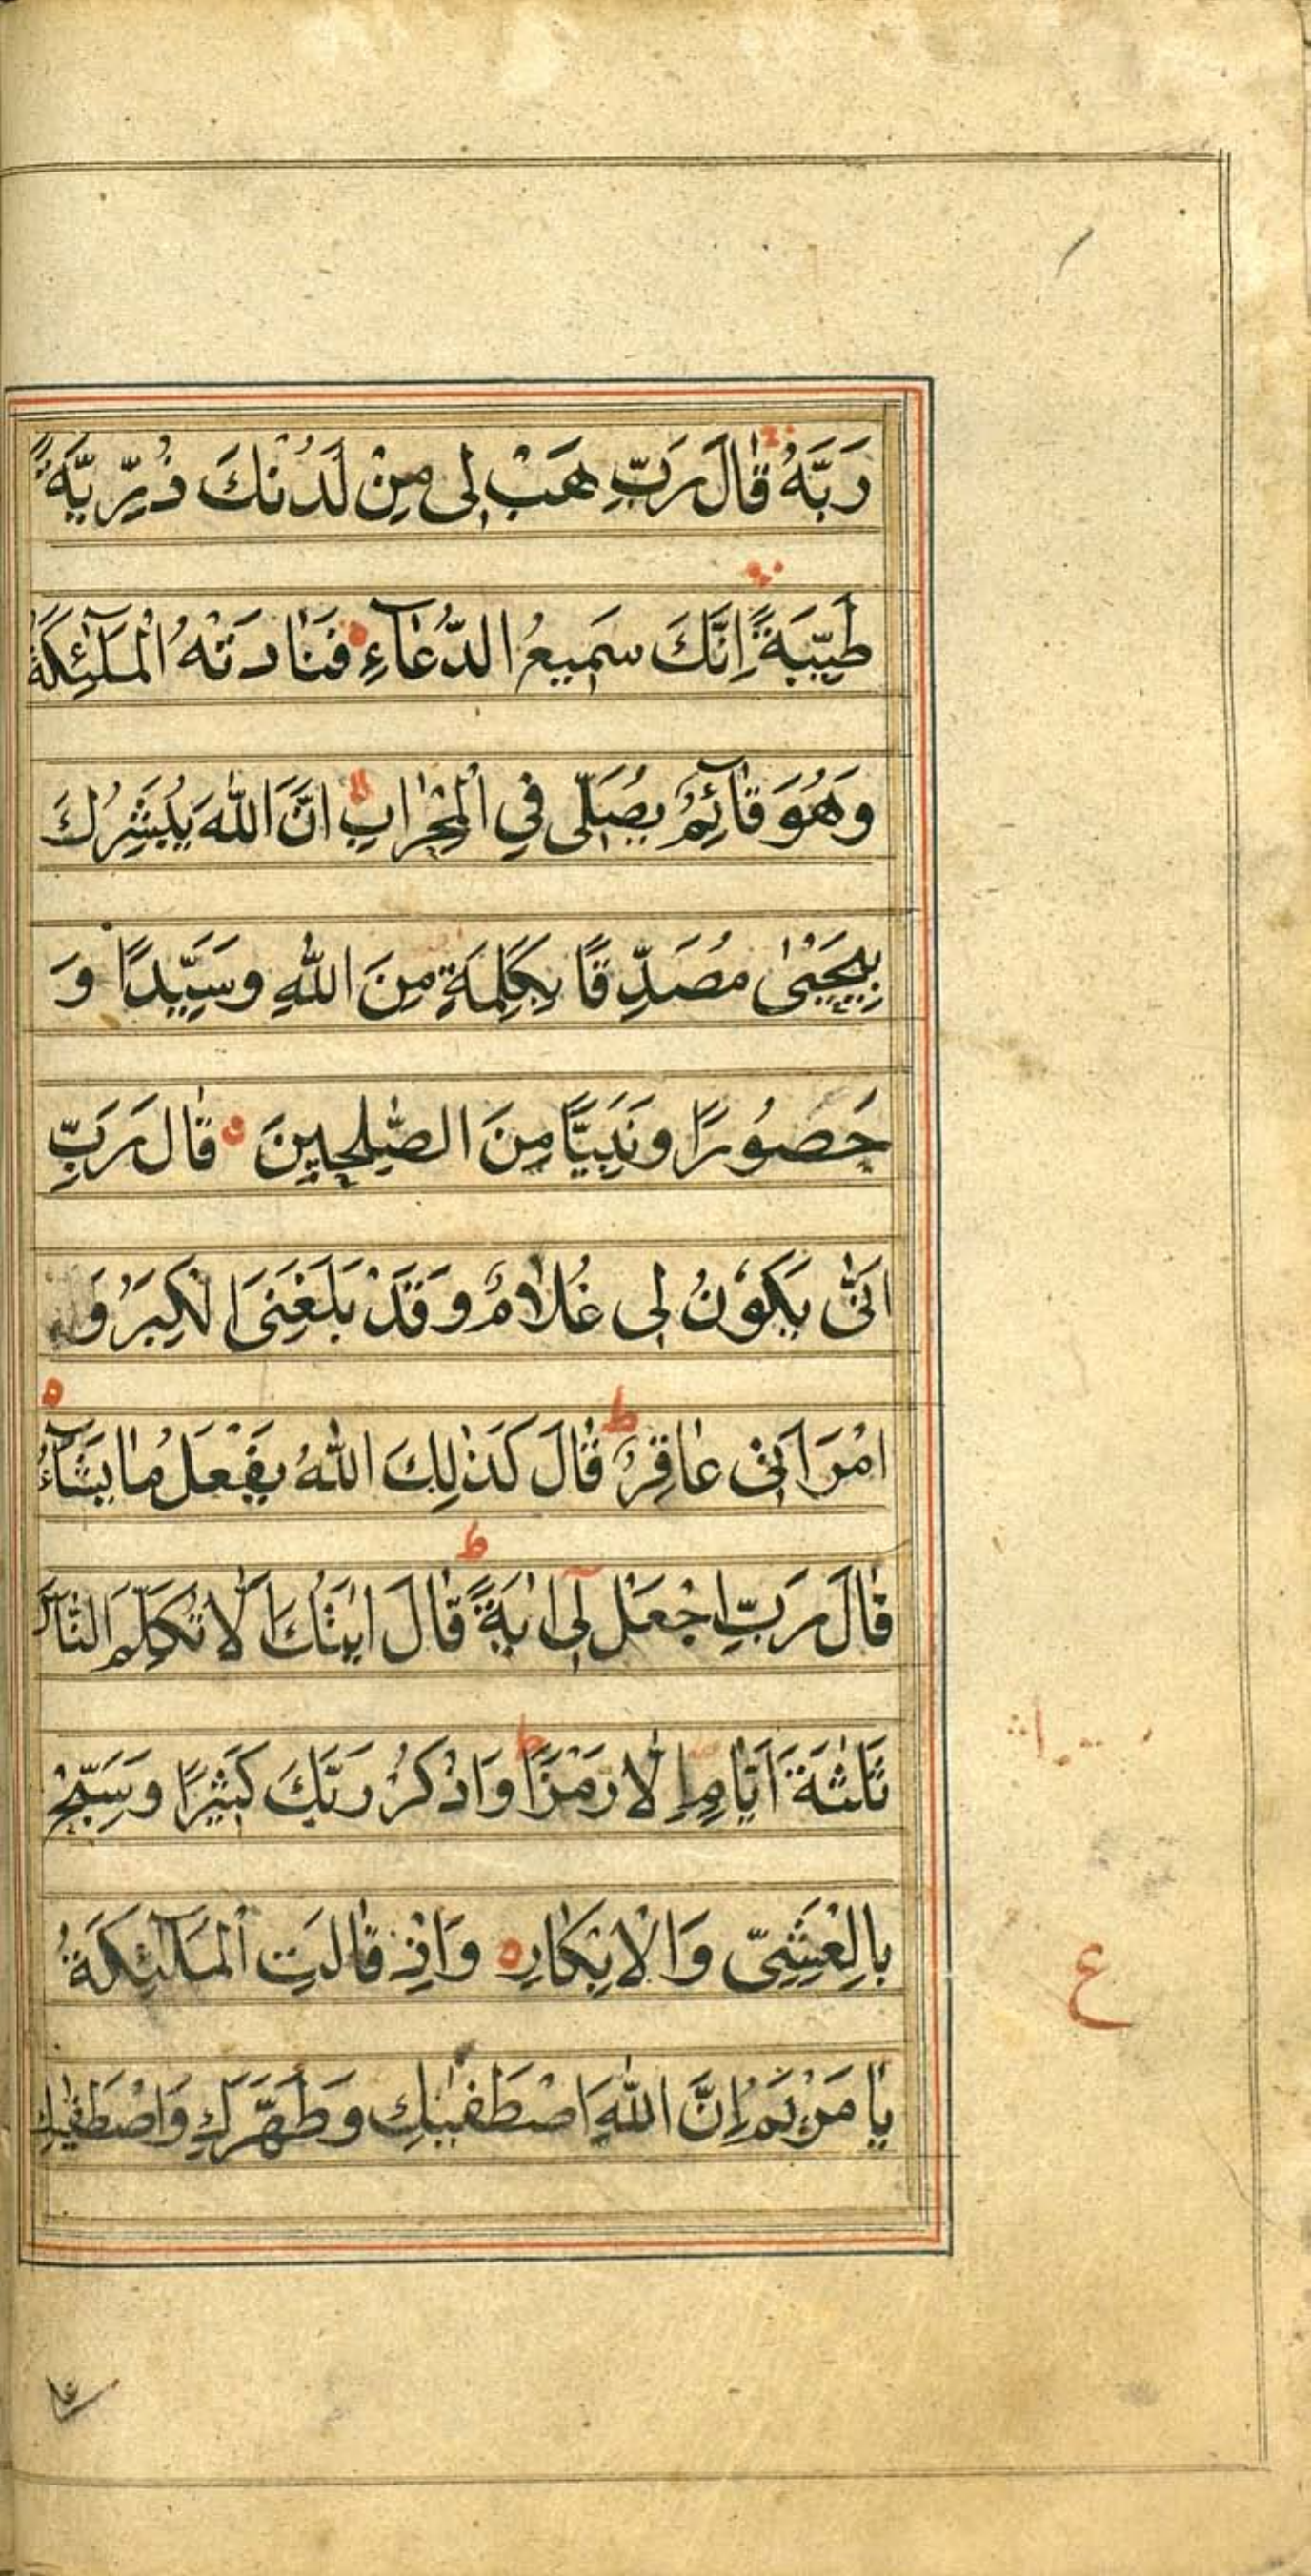 رَبَّهُ قَالَ رَبِّ هَبْ لِی مِنْ لَدُنْكَ ذُرِّیَّةً
طَیِّبَةً اِنَّكَ سَمِیعُ الدُّعَآءِ فَنَادَتْهُ الْمَلٰٓئِكَةُ
وَهُوَ قَآئِمٌ یُصَلِّی فِی الْمِحْرَابِ اَنَّ اللّٰهَ یُبَشِّرُكَ
بِیَحْیٰی مُصَدِّقًا بِكَلِمَةٍ مِنَ اللّٰهِ وَسَیِّدًا وَ
حَصُورًا وَنَبِیًّا مِنَ الصّٰلِحِینَ قَالَ رَبِّ
اَنّٰی یَكُوْنُ لِی غُلَامٌ وَقَدْ بَلَغَنِیَ الْكِبَرُ وَ
امْرَاَتِی عَاقِرٌ ط قَالَ كَذٰلِكَ اللّٰهُ یَفْعَلُ مَا یَشَآءُ
قَالَ رَبِّ اجْعَلْ لِیٓ اٰیَةً ط قَالَ اٰیَتُكَ اَلَّا تُكَلِّمَ النَّاسَ
ثَلٰثَةَ اَیَّامٍ اِلَّا رَمْزًا ط وَاذْكُرْ رَبَّكَ كَثِیْرًا وَسَبِّحْ
بِالْعَشِیِّ وَالْاِبْكَارِ وَاِذْ قَالَتِ الْمَلٰٓئِكَةُ
یَا مَرْیَمُ اِنَّ اللّٰهَ اصْطَفٰیكِ وَطَهَّرَكِ وَاصْطَفٰیكِ
ع